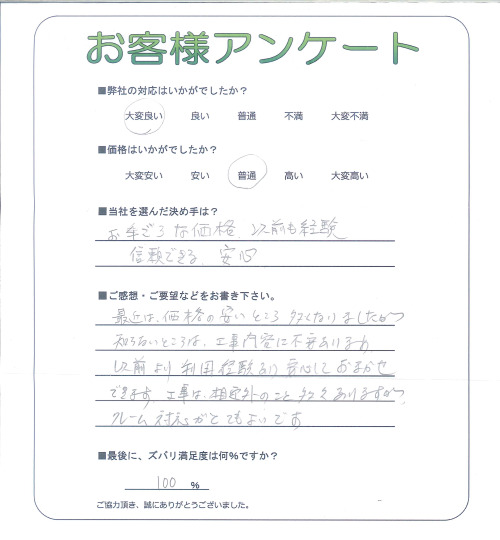 お客様アンケート
■弊社の対応はいかがでしたか？
大変良い 良い 普通 不満 大変不満
■価格はいかがでしたか？
大変安い 安い 普通 高い 大変高い
■当社を選んだ決め手は？
お手ごろな価格、以前も経験
信頼できる、安心
■ご感想・ご要望などをお書き下さい。
最近は、価格の安いところ 多くなりましたが
知らないところは、工事内容に不安あります
以前より利用経験あり 安心しておまかせ
できます、工事は、想定外のこと 多々ありますが、
クレーム対応がとてもよいです
■最後に、ズバリ満足度は何％ですか？
100 ％
ご協力頂き、誠にありがとうございました。